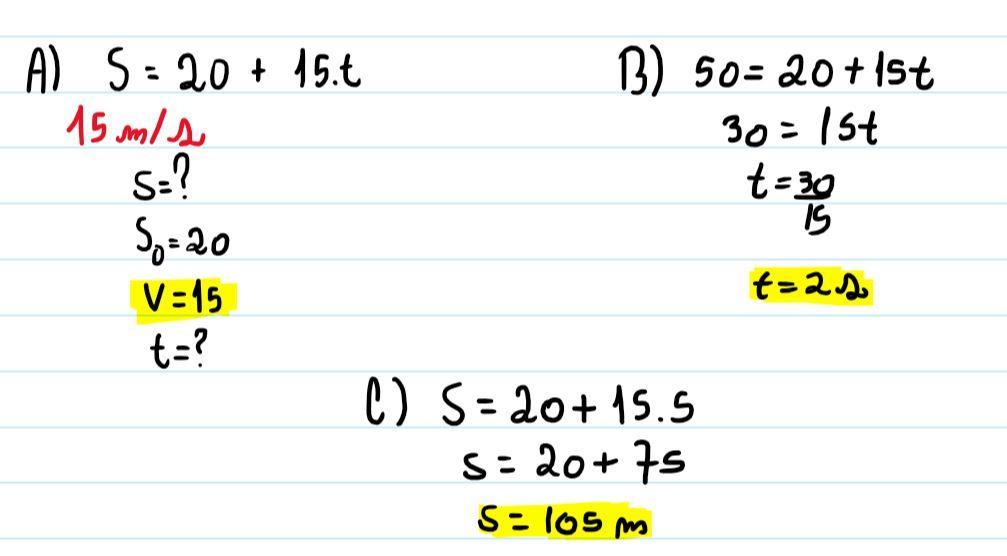 A) S = 20 + 15.t
15 m/s
S=?
S₀=20
V=15
t=?
B) 50=20+15t
30=15t
t=30/15
t=2s
C) S=20+15.5
S=20+75
S=105 m